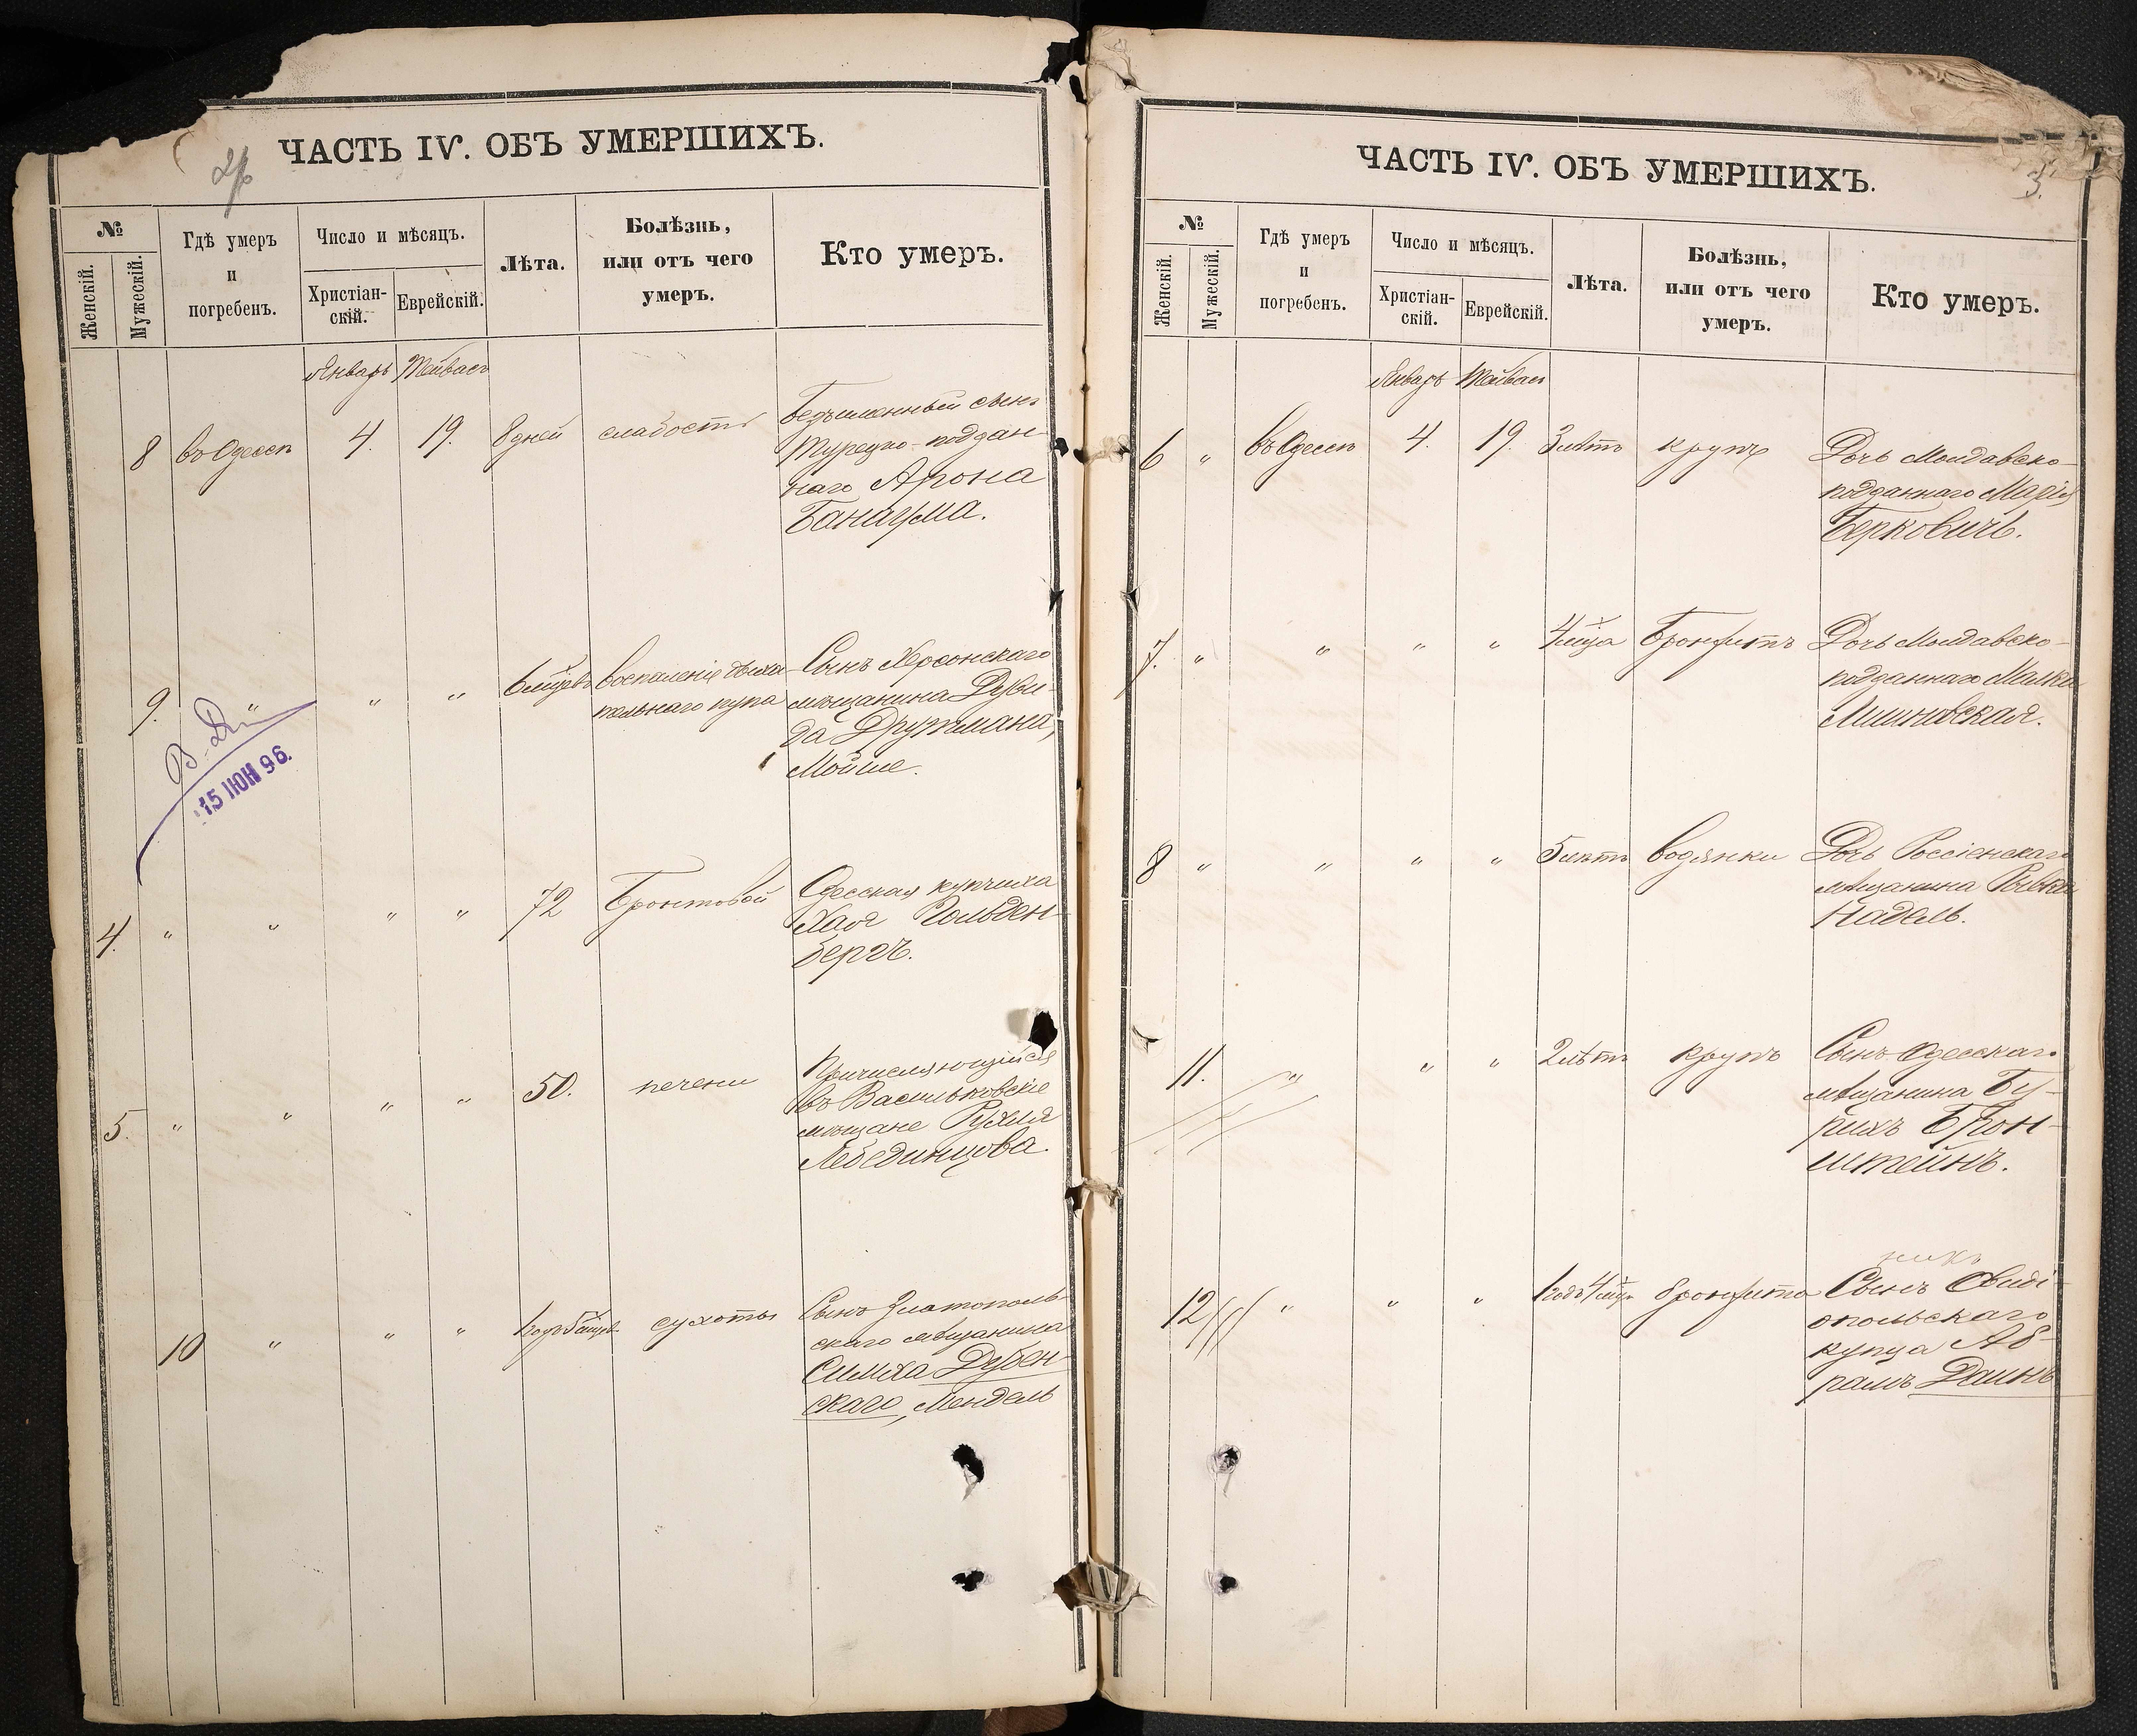 ЧАСТЬ IV. ОБЪ УМЕРШИХЪ.
№
Женскій.
Мужескій.
Гдѣ умеръ
и
погребенъ.
Число и мѣсяцъ.
Христіан-
скій.
Еврейскій.
Лѣта.
Болѣзнь,
или отъ чего
умеръ.
Кто умеръ.
Январь Тейвасъ
8 въ Одессѣ 4. 19. 8 дней слабости
Безъименный сынъ
Турецко-поддан-
наго Арона
Банагума.
9. " " " 6 мѣсяцевъ воспаленіе дыха-
тельнаго
Сынъ Херсонскаго
мѣщанина Дуви-
да Друтмана,
Мойше.
15 ІЮН 96.
4. " " " " 72
Одесская купчиха
Хая Гольден-
бергъ.
5. " " " " 50. печени
Причисляющійся
въ Васильковскіе
мѣщане Рухля
Лебединцова.
10 " " " сухоты
Сынъ Златополь-
скаго мѣщанина
Симха Дубен-
скаго, Мендель
ЧАСТЬ IV. ОБЪ УМЕРШИХЪ.
3.
№
Женскій.
Мужескій.
Гдѣ умеръ
и
погребенъ.
Число и мѣсяцъ.
Христіан-
скій.
Еврейскій.
Лѣта.
Болѣзнь,
или отъ чего
умеръ.
Кто умеръ.
Январь Тейвасъ
6 " въ Одессѣ 4. 19. 3 лѣтъ крупъ
Дочь Молдавско-
подданнаго Марія
Берковичъ.
7. " " " " 4 мѣсяца Бронхитъ
Дочь Молдавско-
подданнаго Малка
8 " " " " 5 лѣтъ водянки
Дочь Россіенскаго
мѣщанина Ривка
Надель.
11. " " " 2 лѣтъ крупъ
Сынъ Одесскаго
мѣщанина Бу-
рихъ Брон-
штейнъ.
12 " " " бронхита
Сынъ Овиді-
опольскаго
купца Аб-
рамъ Даинъ